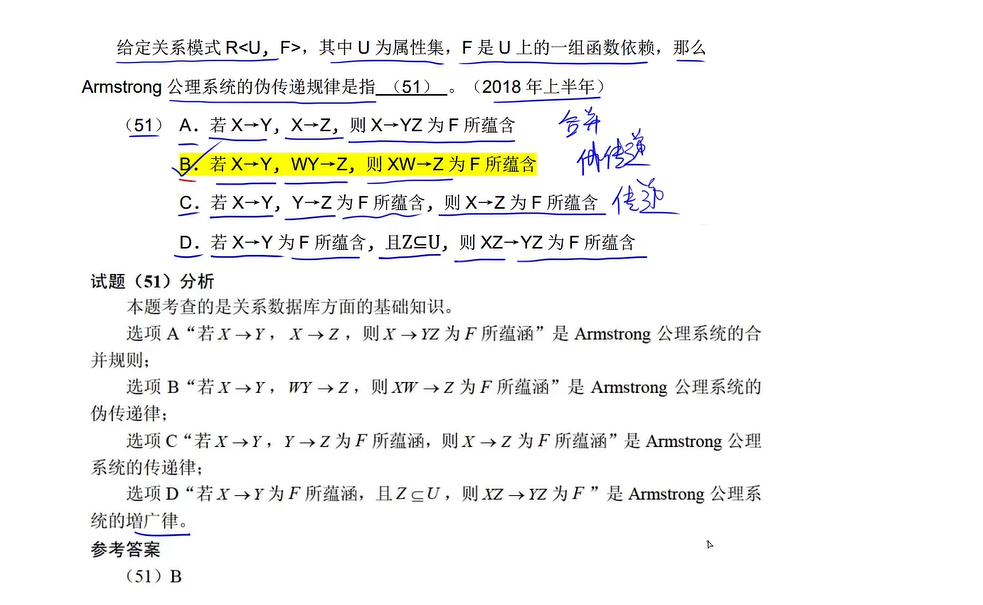 给定关系模式 R<U，F>，其中 U 为属性集，F 是 U 上的一组函数依赖，那么
Armstrong 公理系统的伪传递规律是指 （51） 。（2018 年上半年）
（51） A．若 X→Y，X→Z，则 X→YZ 为 F 所蕴含 合并
B．若 X→Y，WY→Z，则 XW→Z 为 F 所蕴含 伪传递
C．若 X→Y，Y→Z 为 F 所蕴含，则 X→Z 为 F 所蕴含 传递
D．若 X→Y 为 F 所蕴含，且Z⊆U，则 XZ→YZ 为 F 所蕴含
试题（51）分析
本题考查的是关系数据库方面的基础知识。
选项 A“若 X→Y，X→Z，则 X→YZ 为 F 所蕴涵”是 Armstrong 公理系统的合
并规则；
选项 B“若 X→Y，WY→Z，则 XW→Z 为 F 所蕴涵”是 Armstrong 公理系统的
伪传递律；
选项 C“若 X→Y，Y→Z 为 F 所蕴涵，则 X→Z 为 F 所蕴涵”是 Armstrong 公理
系统的传递律；
选项 D“若 X→Y 为 F 所蕴涵，且 Z⊆U，则 XZ→YZ 为 F”是 Armstrong 公理系
统的增广律。
参考答案
（51）B